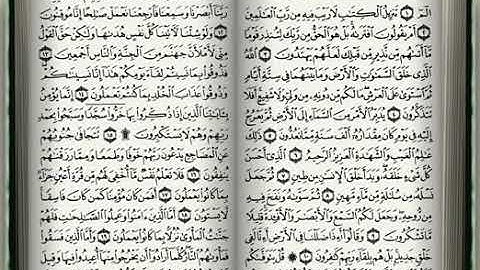 الٓمٓ ١ تَنزِيلُ ٱلْكِتَٰبِ لَا رَيْبَ فِيهِ مِن رَّبِّ ٱلْعَٰلَمِينَ
٢ أَمْ يَقُولُونَ ٱفْتَرَىٰهُ بَلْ هُوَ ٱلْحَقُّ مِن رَّبِّكَ لِتُنذِرَ قَوْمًا
مَّآ أَتَىٰهُم مِّن نَّذِيرٍ مِّن قَبْلِكَ لَعَلَّهُمْ يَهْتَدُونَ ٣ ٱللَّهُ
ٱلَّذِى خَلَقَ ٱلسَّمَٰوَٰتِ وَٱلْأَرْضَ وَمَا بَيْنَهُمَا فِى سِتَّةِ أَيَّامٍ
ثُمَّ ٱسْتَوَىٰ عَلَى ٱلْعَرْشِ مَا لَكُم مِّن دُونِهِۦ مِن وَلِىٍّ وَلَا شَفِيعٍ أَفَلَا
تَتَذَكَّرُونَ ٤ يُدَبِّرُ ٱلْأَمْرَ مِنَ ٱلسَّمَآءِ إِلَى ٱلْأَرْضِ ثُمَّ يَعْرُجُ
إِلَيْهِ فِى يَوْمٍ كَانَ مِقْدَارُهُۥٓ أَلْفَ سَنَةٍ مِّمَّا تَعُدُّونَ ٥ ذَٰلِكَ
عَٰلِمُ ٱلْغَيْبِ وَٱلشَّهَٰدَةِ ٱلْعَزِيزُ ٱلرَّحِيمُ ٦ ٱلَّذِىٓ أَحْسَنَ
كُلَّ شَىْءٍ خَلَقَهُۥ وَبَدَأَ خَلْقَ ٱلْإِنسَٰنِ مِن طِينٍ ٧ ثُمَّ جَعَلَ
نَسْلَهُۥ مِن سُلَٰلَةٍ مِّن مَّآءٍ مَّهِينٍ ٨ ثُمَّ سَوَّىٰهُ وَنَفَخَ فِيهِ
مِن رُّوحِهِۦ وَجَعَلَ لَكُمُ ٱلسَّمْعَ وَٱلْأَبْصَٰرَ وَٱلْأَفْـِٔدَةَ قَلِيلًا
مَّا تَشْكُرُونَ ٩ وَقَالُوٓا۟ أَءِذَا ضَلَلْنَا فِى ٱلْأَرْضِ أَءِنَّا لَفِى
خَلْقٍ جَدِيدٍۭ بَلْ هُم بِلِقَآءِ رَبِّهِمْ كَٰفِرُونَ ١٠ ۞ قُلْ يَتَوَفَّىٰكُم
رَبَّنَآ أَبْصَرْنَا وَسَمِعْنَا فَٱرْجِعْنَا نَعْمَلْ صَٰلِحًا إِنَّا مُوقِنُونَ
١٢ وَلَوْ شِئْنَا لَءَاتَيْنَا كُلَّ نَفْسٍ هُدَىٰهَا وَلَٰكِنْ حَقَّ ٱلْقَوْلُ
مِنِّى لَأَمْلَأَنَّ جَهَنَّمَ مِنَ ٱلْجِنَّةِ وَٱلنَّاسِ أَجْمَعِينَ ١٣
فَذُوقُوا۟ بِمَا نَسِيتُمْ لِقَآءَ يَوْمِكُمْ هَٰذَآ إِنَّا نَسِينَٰكُمْ
وَذُوقُوا۟ عَذَابَ ٱلْخُلْدِ بِمَا كُنتُمْ تَعْمَلُونَ ١٤ إِنَّمَا يُؤْمِنُ
بِـَٔايَٰتِنَا ٱلَّذِينَ إِذَا ذُكِّرُوا۟ بِهَا خَرُّوا۟ سُجَّدًا وَسَبَّحُوا۟ بِحَمْدِ
رَبِّهِمْ وَهُمْ لَا يَسْتَكْبِرُونَ ۩ ١٥ تَتَجَافَىٰ جُنُوبُهُمْ
عَنِ ٱلْمَضَاجِعِ يَدْعُونَ رَبَّهُمْ خَوْفًا وَطَمَعًا وَمِمَّا رَزَقْنَٰهُمْ
يُنفِقُونَ ١٦ فَلَا تَعْلَمُ نَفْسٌ مَّآ أُخْفِىَ لَهُم مِّن قُرَّةِ أَعْيُنٍ جَزَآءًۢ
بِمَا كَانُوا۟ يَعْمَلُونَ ١٧ أَفَمَن كَانَ مُؤْمِنًا كَمَن كَانَ فَاسِقًا
لَّا يَسْتَوُۥنَ ١٨ أَمَّا ٱلَّذِينَ ءَامَنُوا۟ وَعَمِلُوا۟ ٱلصَّٰلِحَٰتِ فَلَهُمْ
جَنَّٰتُ ٱلْمَأْوَىٰ نُزُلًۢا بِمَا كَانُوا۟ يَعْمَلُونَ ١٩ وَأَمَّا ٱلَّذِينَ فَسَقُوا۟
فَمَأْوَىٰهُمُ ٱلنَّارُ كُلَّمَآ أَرَادُوٓا۟ أَن يَخْرُجُوا۟ مِنْهَآ أُعِيدُوا۟ فِيهَا وَقِيلَ